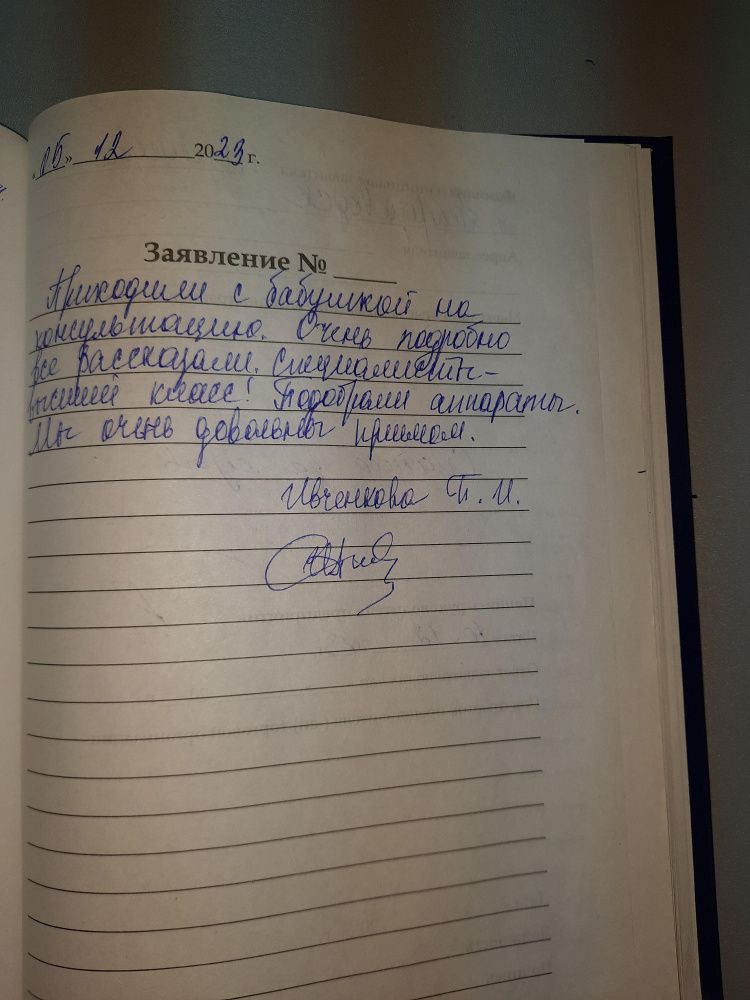 «05» 12 2023 г.
Заявление № ____
Приходили с бабушкой на
консультацию. Очень подробно
все рассказали. Специалисты -
высший класс! Подобрали аппараты.
Мы очень довольны приемом.
Ивченкова П. И.